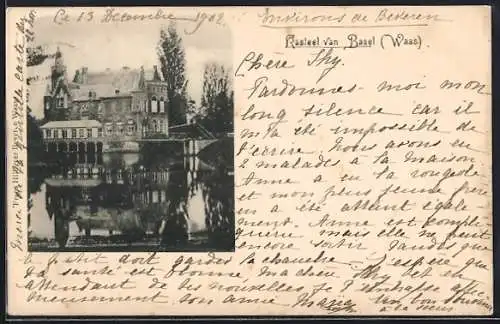 Ce 13 Decembre 1902. Environs de Beveren
Kasteel van Basel (Waas)
Chère Shy,
Pardonnes-moi mon
long silence car il
m'a été impossible de
t'écrire. Nous avons eu
2 malades à la maison
Anne a eu la rougeole
et mon plus jeune frère
en a été atteint égale
ment. Anne est complè
guérie mais elle ne peut
encore sortir tandis que
le petit doit garder la chambre. J'espère que
ta santé est bonne ma chère Shy et en
attendant de tes nouvelles je t'embrasse affec
tueusement ton amie Marie. bon souvenir
à ta sœur